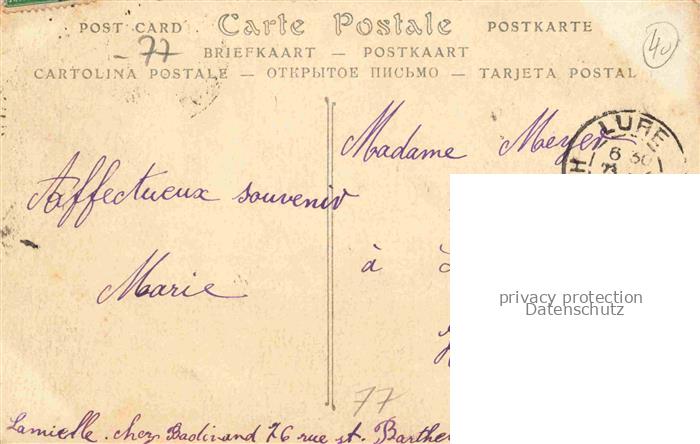 POST CARD Carte Postale POSTKARTE
77
40
BRIEFKAART — POSTKAART
CARTOLINA POSTALE — ОТКРЫТОЕ ПИСЬМО — TARJETA POSTAL
LURE
6 30
Madame Meyer
Affectueux souvenir
à
Marie
privacy protection
Datenschutz
77
chez 76 rue st.